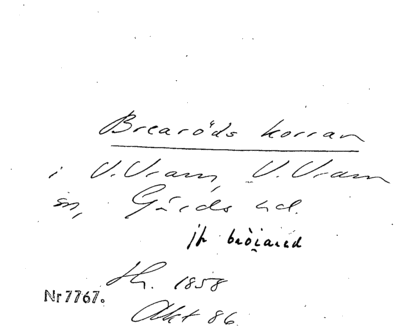 Brearöds korran
i V. Vram, V. Vram
sn, Gärds hd.
jfr bröiared
Sk. 1858
Nr 7767.
Akt 86